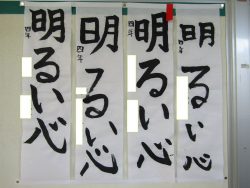 明るい心
四年
明るい心
四年
明るい心
四年
明るい心
四年